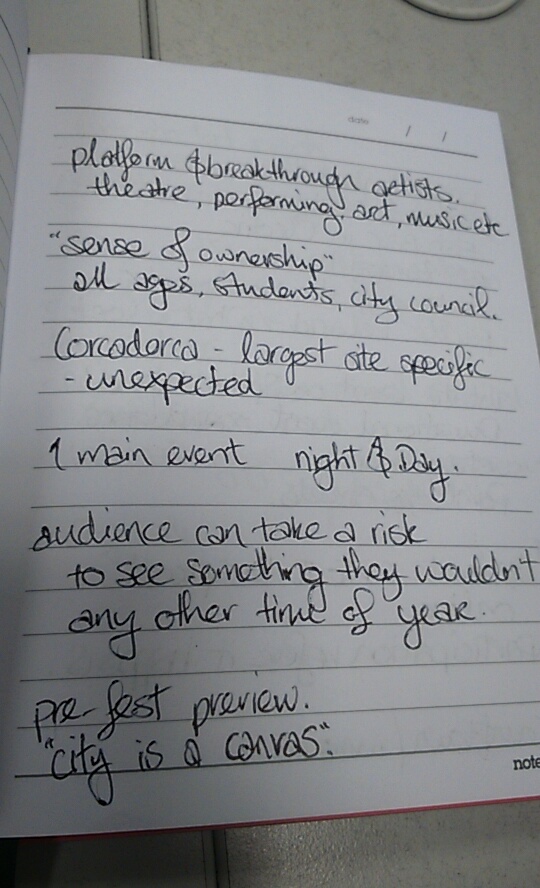 date / /
platform & breakthrough artists.
theatre, performing art, music etc
"sense of ownership"
all ages, students, city council.
Corcadorca - largest site specific
- unexpected
1 main event night & Day.
audience can take a risk
to see something they wouldn't
any other time of year.
pre-fest preview.
"city is a canvas".
note